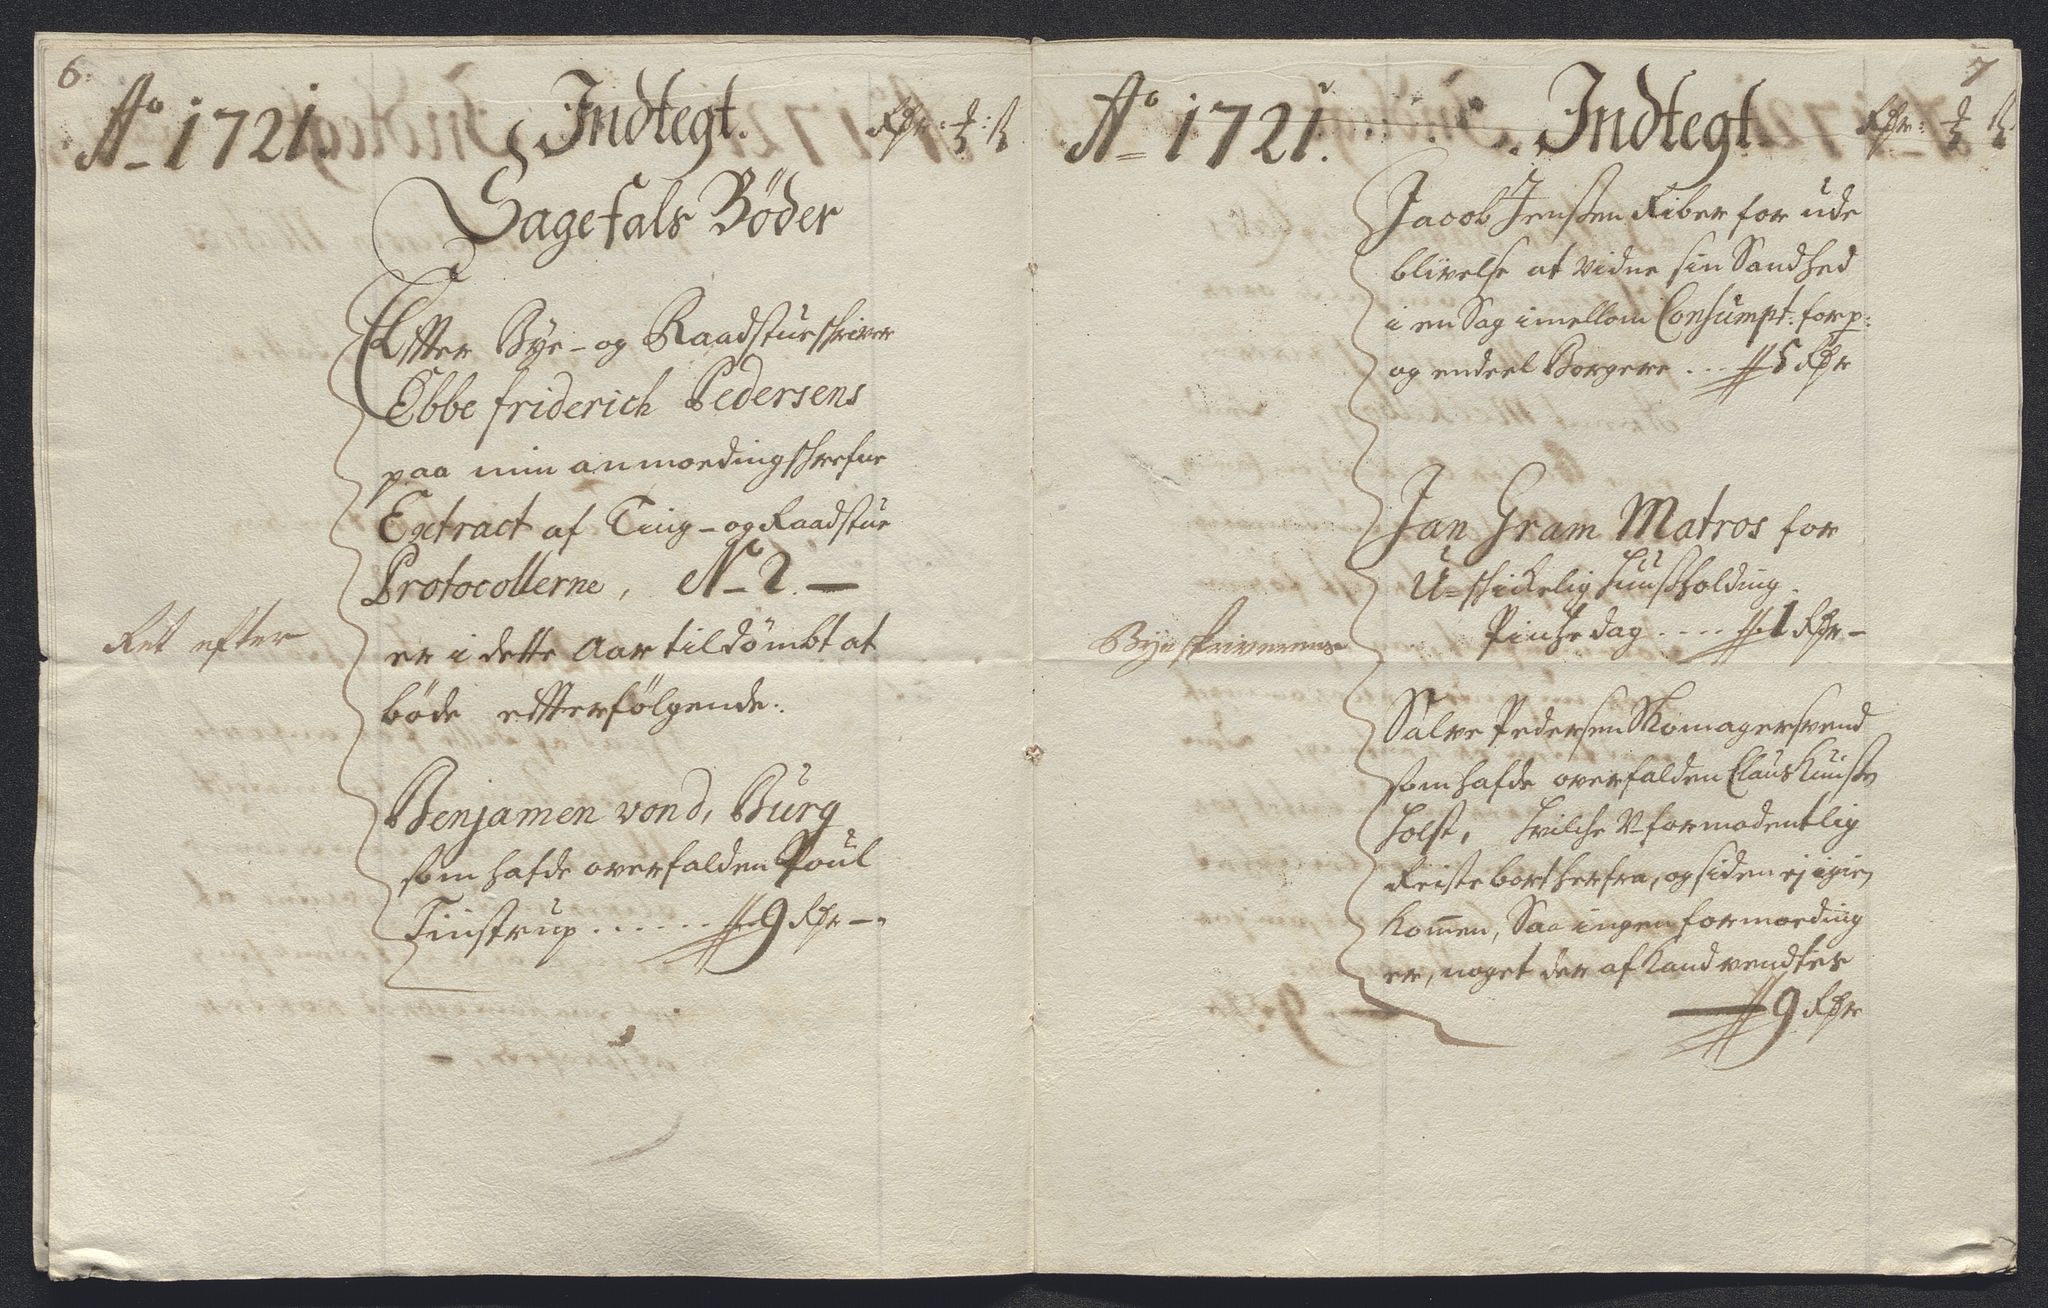 6.
Aº 1721. Indtegt. Rdr:
Sagefals Böder
Efter Bye- og Raadstueskriver
Ebbe friderich Pedersens
paa min anmoeding skrefne
Extract af Ting- og Raadstue
Protocollerne, Nº 2. —
Ret efter
er i dette Aar tildömbt at
böde effterfölgende.
Benjamen von d, Burg
som hafde overfalden Poul
Tinstrup...... 9 Rdr—
7
Aº 1721. Indtegt. Rdr:
Jacob Jensen Riber for ude
blivelse at vidne sin Sandhed
i en Sag imellom Consumpt: forp:
og endeel Borgere ... 5 Rdr
Jan Gram Matros for
U=skickelig huusholding
Pintzedag .... 1 Rdr—
Bye skriverens
Salve Pedersen Skomagersvend
som hafde overfalden Claus
Holst, hvilche U-formodentlig
Reiste bort herfra, og siden ej igien
kom̄en, Saa ingen formoeding
er, noget der af kand ventes
— 9 Rdr